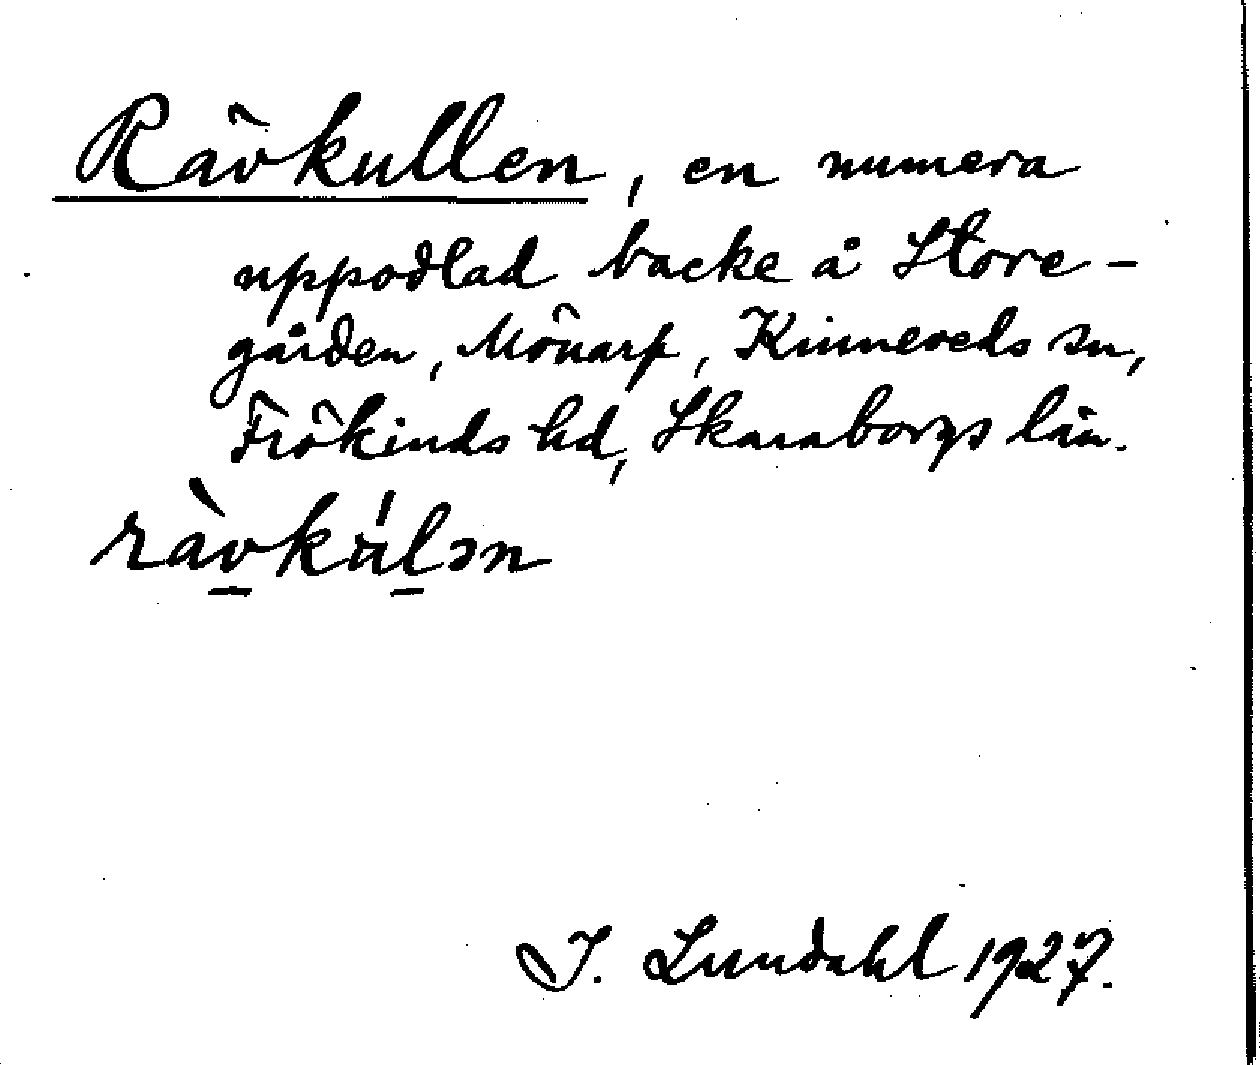 Rävkullen, en numera
uppodlad backe å Store-
gården, Mönarp, Kinneveds sn,
Frökinds hd, Skaraborgs län.
ràv̲kúl̲ən
I. Lundahl 1927.